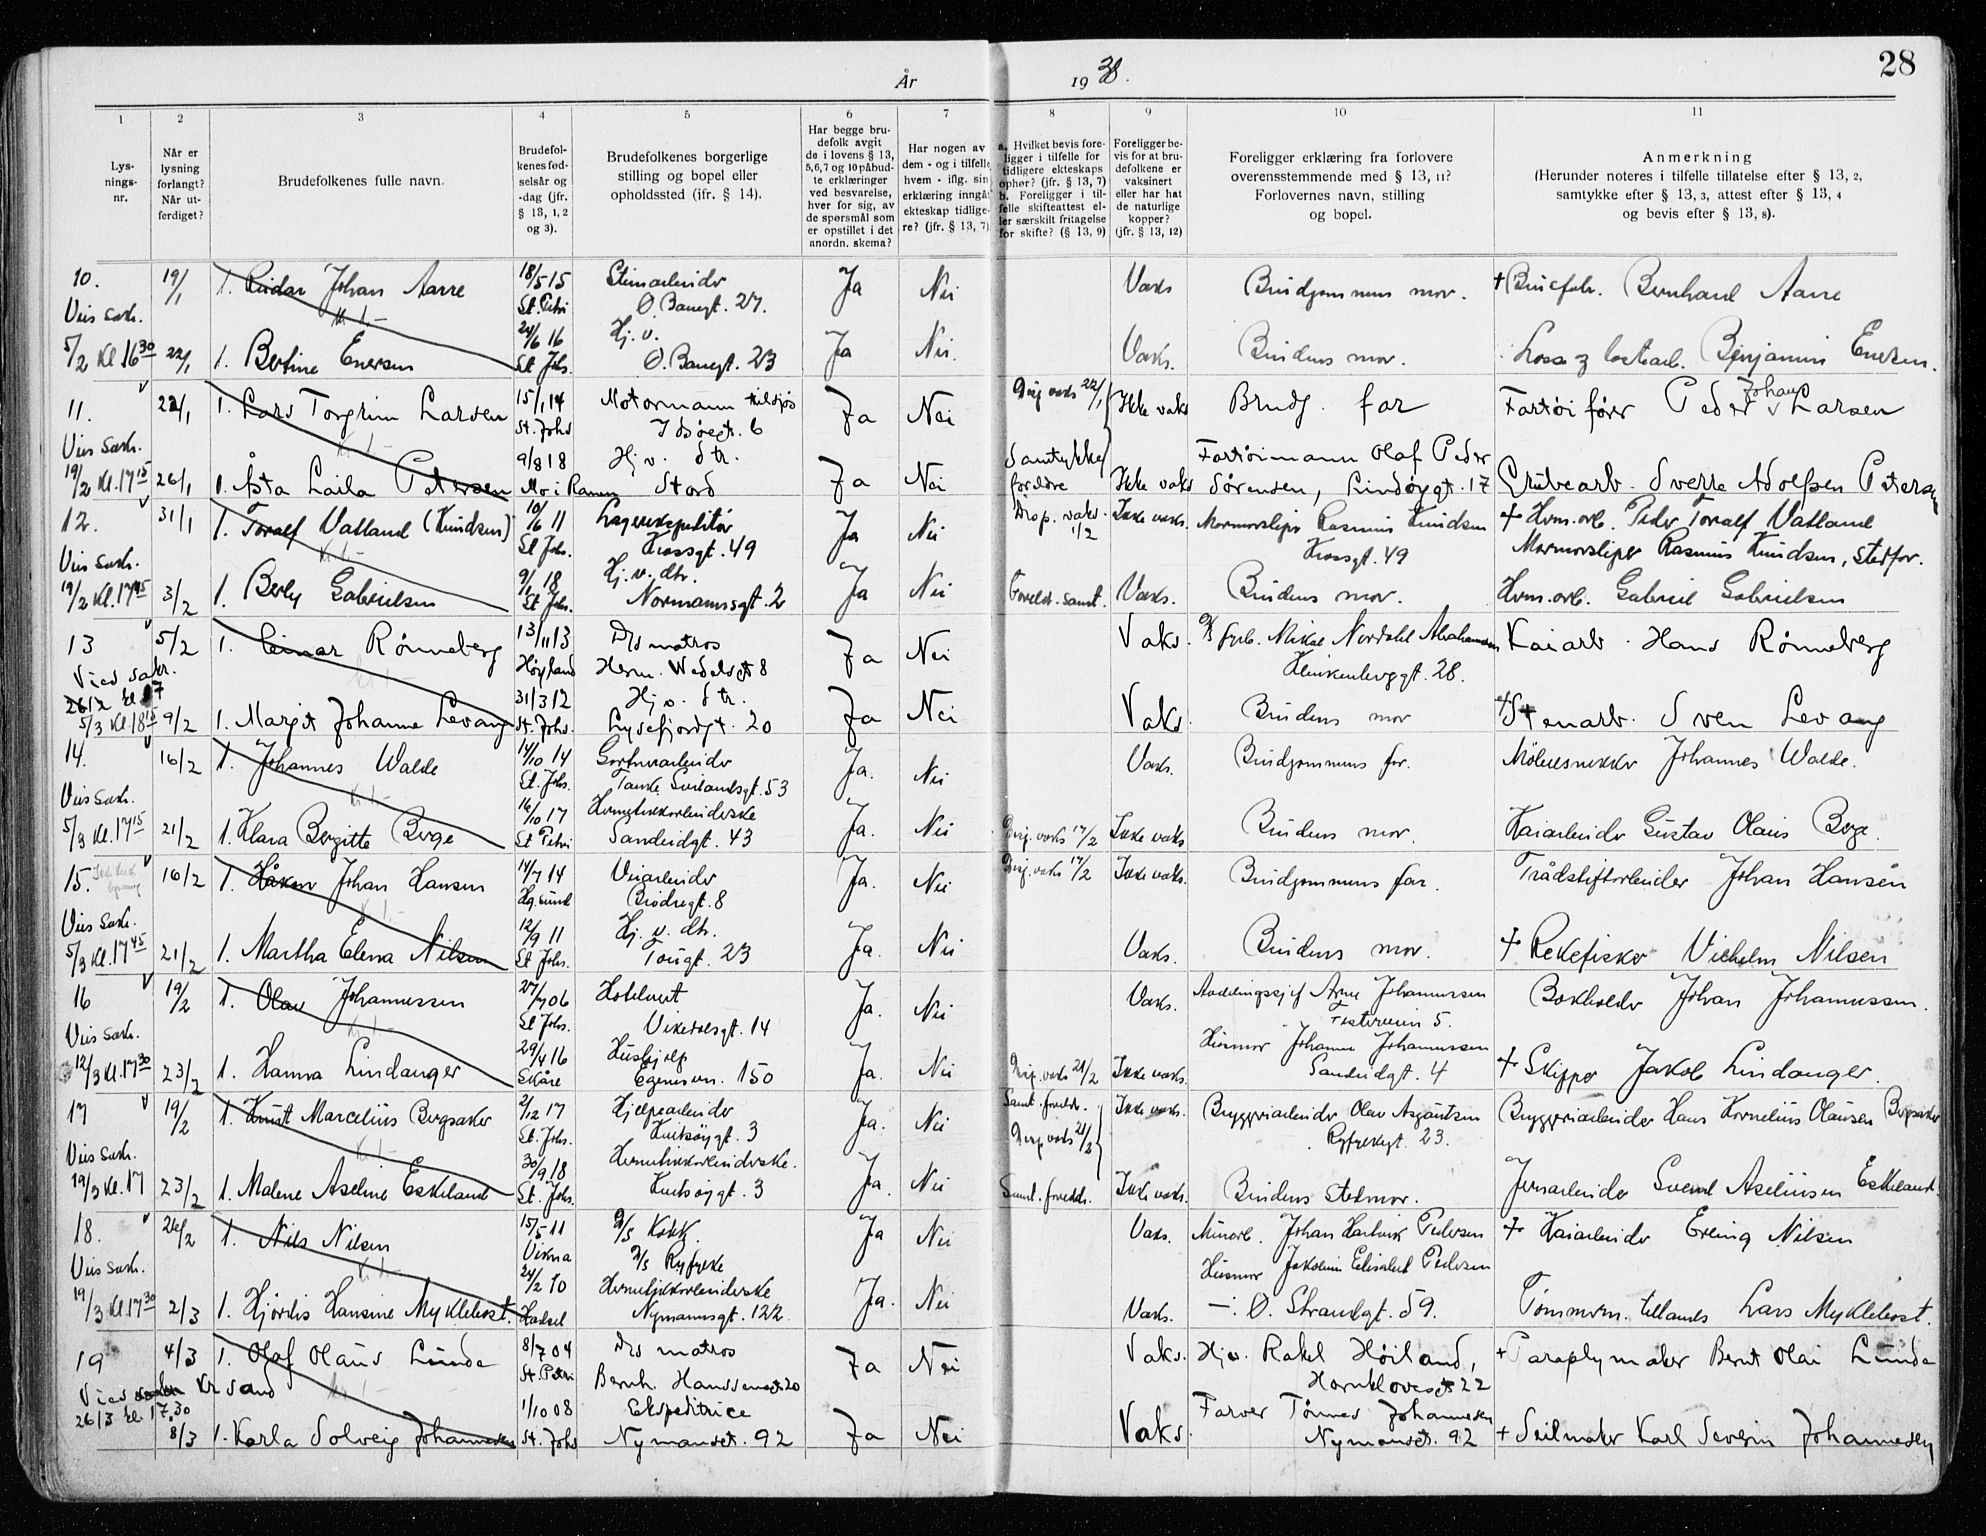 28
År 1938.
1 2 3 4 5 6 7 8 9 10 11
Lysningsnr.
Når er lysning forlangt? Når utferdiget?
Brudefolkenes fulle navn.
Brudefolkenes fødselsår og -dag (jfr. § 13, 1, 2 og 3).
Brudefolkenes borgerlige stilling og bopel eller opholdssted (jfr. § 14).
Har begge brudefolk avgit de i lovens § 13, 5, 6, 7 og 10 påbudte erklæringer ved besvarelse, hver for sig, av de spørsmål som er opstillet i det anordn. skema?
Har nogen av dem - og i tilfelle hvem - iflg. sin erklæring inngå ekteskap tidligere? (jfr. § 13, 7)
a. Hvilket bevis foreligger i tilfelle for tidligere ekteskaps ophør? (jfr. § 13, 7) b. Foreligger i tilfelle skifteattest eller særskilt fritagelse for skifte? (§ 13, 9)
Foreligger bevis for at brudefolkene er vaksinert eller har hat de naturlige kopper? (jfr. § 13, 12)
Foreligger erklæring fra forlovere overensstemmende med § 13, 11? Forlovernes navn, stilling og bopel.
Anmerkning (Herunder noteres i tilfelle tillatelse efter § 13, 2, samtykke efter § 13, 3, attest efter § 13, 4 og bevis efter § 13, 8).
10. 19/1 1. Reidar Johan Aarre 18/5 15 St. Petri Stenarbeider Ø. Banegt. 27. Ja Nei Vaks Brudgommens mor. + Bernhard Aarre
Vies Sakr. 5/2 Kl 16 30 22/1 1. Bertine Enersen 24/6 16 St. Johs. Hj. v. Ø. Banegt. 23 Ja Nei. Vaks. Brudens mor. Benjamin Enersen.
11. 22/1 1. Lars Torgrim Larsen 15/1 14 St. Johs Motormann Idsøegt. 6 Ja Nei Disp vaks 22/1 Ikke vaks Brudg. far Fartøifører Peder Johan Larsen
Vies Sakr. 19/2 Kl. 17 15 26/1 1. Åsta Laila Petersen 9/8 18 Mo i Ranen Hj v. dtr. Stord Ja Nei Samtykke foreldre Ikke vaks Fartøimann Olaf Peder Sørensen, Lindøygt. 17 Grubearb. Sverre Adolfsen Petersen
12. 31/1 1. Toralf Vatland (Knudsen) 10/6 11 St Johs. Lagerekspeditør Krossgt. 49 Ja Nei Disp. vaks. 1/2 Ikke vaks. Marmorsliper Rasmus Knudsen Krossgt. 49 + Herm.arb. Peder Toralf Vatland Marmorsliper Rasmus Knudsen, stedfar.
Vies Sakr. 19/2 Kl. 17 45 3/2 1. Berly Gabrielsen 9/1 18 St Johs. Hj. v. dtr. Normannsgt. 2 Ja Nei Foreld. samt. Vaks. Brudens mor. Herm.arb. Gabriel Gabrielsen
13 5/2 1. Einar Rønneberg 13/11 13 Høyland D/s matros Herm. Wedelsgt 8 Ja Nei Vaks. Mikal Nordahl Abrahamsen 28. Kaiarb. Hans Rønneberg
Vies sakr. 26/2 kl 17 5/3 Kl. 18 15 9/2 1. Margit Johanne Levang 31/3 12 St. Johs. Hj v. dtr. Lysefjordgt. 20 Ja Nei Vaks. Brudens mor Stenarb. Sven Levang
14. 16/2 1. Johannes Walde 14/10 14 St. Johs. Tanke Svilandsgt. 53 Ja. Nei Vaks. Brudgommens far. Møbelsnekker Johannes Walde.
Vies Sakr. 5/3 Kl. 17 15 21/2 1. Klara Bergitte Berge 16/10 17 St Petri Hermetikkarbeiderske Sandeidgt. 43 Ja. Nei Disp. vaks 17/2 Ikke vaks Brudens mor. Kaiarbeider Gustav Olaus Berge.
15. 16/2 1. Håkon Johan Hansen 14/7 14 Hg.sund Veiarbeider Breidregt. 8 Ja. Nei Disp. vaks 17/2 Ikke vaks. Brudgommens far. Trådstiftarbeider Johan Hansen
Vies Sakr. 5/3 Kl. 17 45 21/2 1. Martha Elena Nilsen 12/9 11 St Johs. Hj. v. dtr. Tougt. 23 Ja. Nei Vaks. Brudens mor. + Rekefisker Vilhelm Nilsen
16 19/2 1. Olav Johannessen 27/7 06 St Johs. Hotelvert Vikedalsgt. 14 Ja. Nei Vaks. Avdelingssjef Arne Johannessen 5. Bokholder Johan Johannessen.
Vies Sakr. 12/3 Kl. 17 30 23/2 1. Hanna Lindanger 29/4 16 Skåre Hushjelp Egenesvn. 150 Ja. Nei Disp. vaks 21/2 Ikke vaks. Husmor Johanne Johannessen Sandeidgt. 4 + Skipper Jakob Lindanger.
17 19/2 1. Knut Marcelius Bergsaker 2/12 17 St. Johs. Hjelpearbeider Kvitsøygt. 3 Ja. Nei Samt. foreldr. Disp vaks 21/2 Ikke vaks. Bryggeriarbeider Olav Asgautsen Ryfylkegt. 23. Bryggeriarbeider Hans Kornelius Olausen Bergsaker
Vies Sakr. 19/3 Kl. 17 23/2 1. Malene Aseline Eskeland 30/9 18 St. Johs. Hermetikkarbeiderske. Kvitsøygt. 3 Ja. Nei Samt. foreldr. Ikke vaks. Brudens stedmor. Jernarbeider Svend Aselius­sen Eskeland.
18. 26/2 1. Nils Nilsen 15/5 11 Vikna D/s Kokk. D/s Ryfylke Ja Nei Vaks. Murarb. Johan Hartvik Pedersen + Kaiarbeider Erling Nilsen
Vies Sakr. 19/3 Kl. 17 30 2/3 1. Hjørdis Hansine Myklebost. 24/2 10 Hadsel Hermetikkarbeiderske Nymannsgt. 122. Ja. Nei Vaks. Husmor Jakobine Elisabet Pedersen Ø. Strandgt. 59. Tømmerm. Lars Myklebost.
19 4/3 1. Olaf Olaus Lunde 8/7 04 St. Petri D/s matros Bernh. Hanssensgt 20 Ja Nei Vaks. Hjv. Rakel Høiland, Hornklovesgt 22 + Paraplymaker Bernt Olai Lunde
Vies Kr sand 26/3 kl. 17.30 8/3 1. Karla Solveig Johannessen 1/10 08 St. Johs Ekspeditrice Nymansgt. 92 Ja Nei Vaks. Farver Tønnes Johannesen Nymansgt. 92 + Seilmaker Karl Severin Johannesen